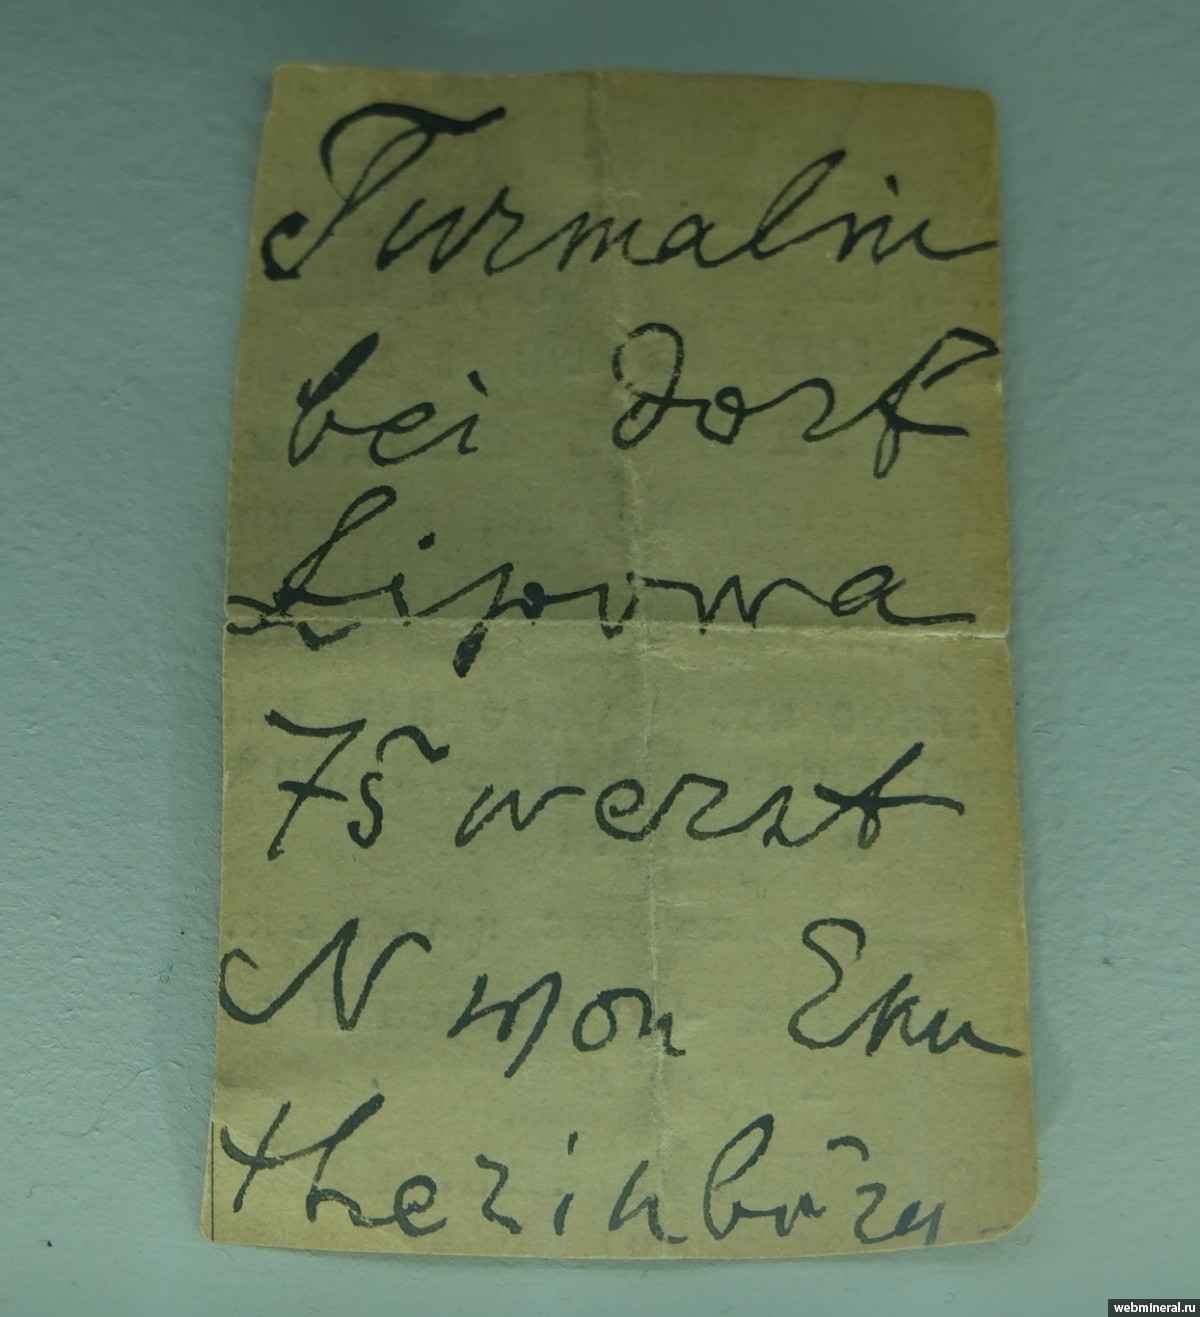 Turmalin
bei Dorf
Lipovwa
75 werst
N von Eka
therinbŭrg
webmineral.ru